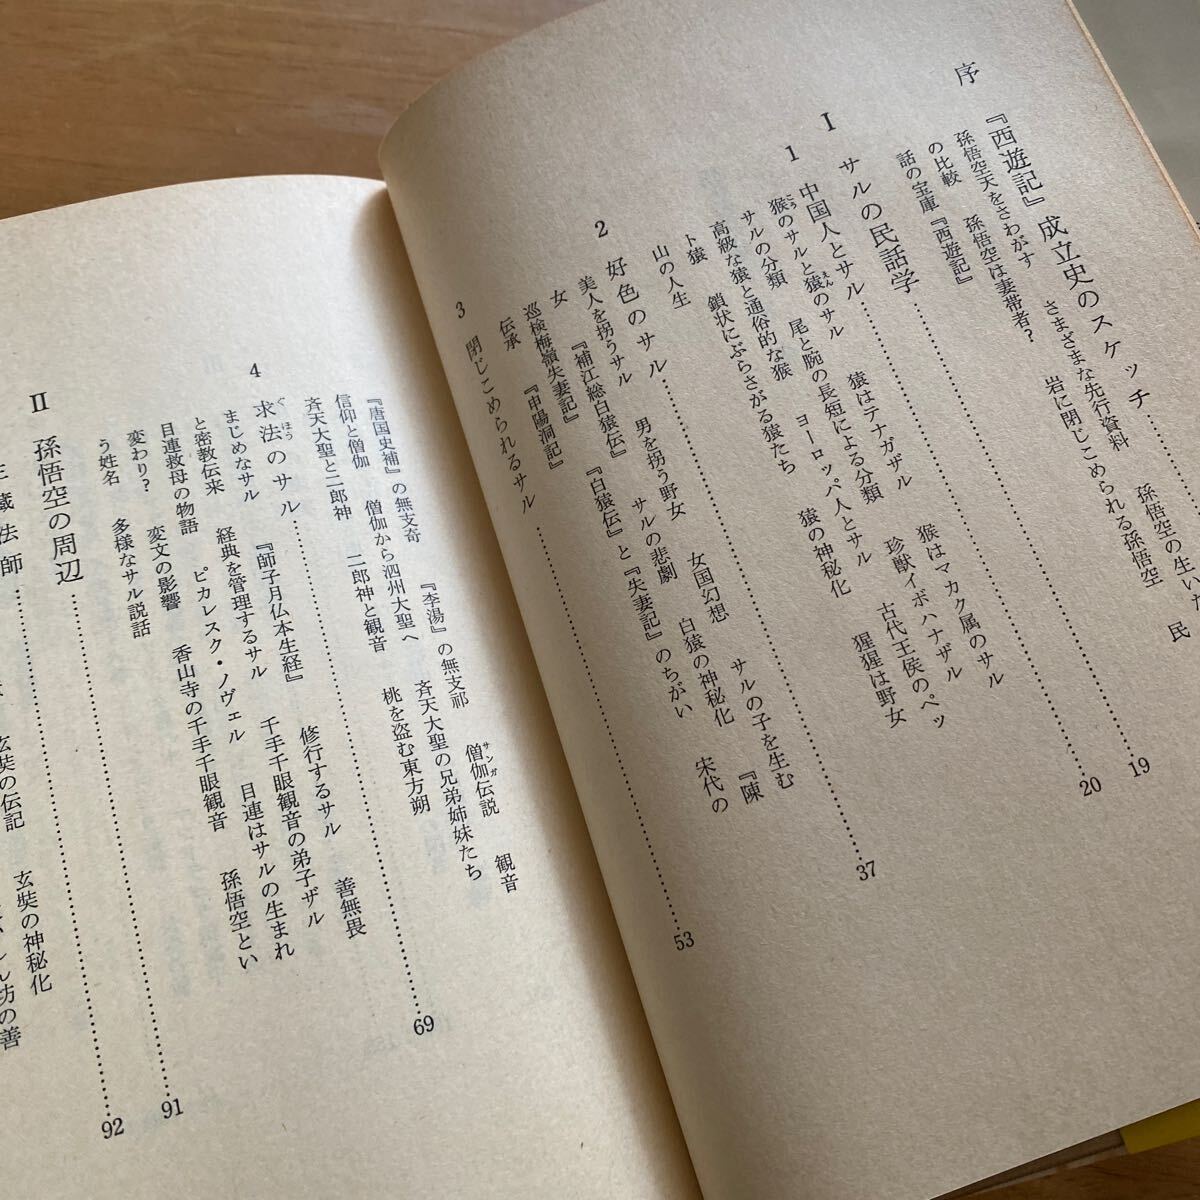 序 『西遊記』成立史のスケッチ
孫悟空天をさわがす さまざまな先行資料 孫悟空の生い
の比較 孫悟空は妻帯者? 岩に閉じこめられる孫悟空 民
話の宝庫『西遊記』
I サルの民話学 19
1 中国人とサル 20
猴のサルと猿のサル 猿はテナガザル 猴はマカク属のサル
サルの分類 尾と腕の長短による分類 珍獣イボハナザル
高級な猿と通俗的な猴 ヨーロッパ人とサル 古代王侯のペッ
ト猿 鎖状にぶらさがる猿たち 猿の神秘化 猩猩は野女
山の人生
2 好色のサル 37
美人を拐うサル 男を拐う野女 女国幻想 サルの子を生む
女 『補江総白猿伝』 サルの悲劇 白猿の神秘化 『陳
巡検梅嶺失妻記』 『白猿伝』と『失妻記』のちがい 宋代の
伝承 『申陽洞記』
3 閉じこめられるサル 53
『唐国史補』の無支奇 『李湯』の無支祁 僧伽伝説 観音
信仰と僧伽 僧伽から泗州大聖へ 斉天大聖の兄弟姉妹たち
斉天大聖と二郎神 二郎神と観音 桃を盗む東方朔
4 求法のサル 69
まじめなサル 『師子月仏本生経』 修行するサル 善無畏
と密教伝来 経典を管理するサル 千手千眼観音の弟子ザル
目連救母の物語 ピカレスク・ノヴェル 目連はサルの生まれ
変わり? 変文の影響 香山寺の千手千眼観音 孫悟空とい
う姓名 多様なサル説話
II 孫悟空の周辺 91
蔵法師 92
玄奘の伝記 玄奘の神秘化
坊の善